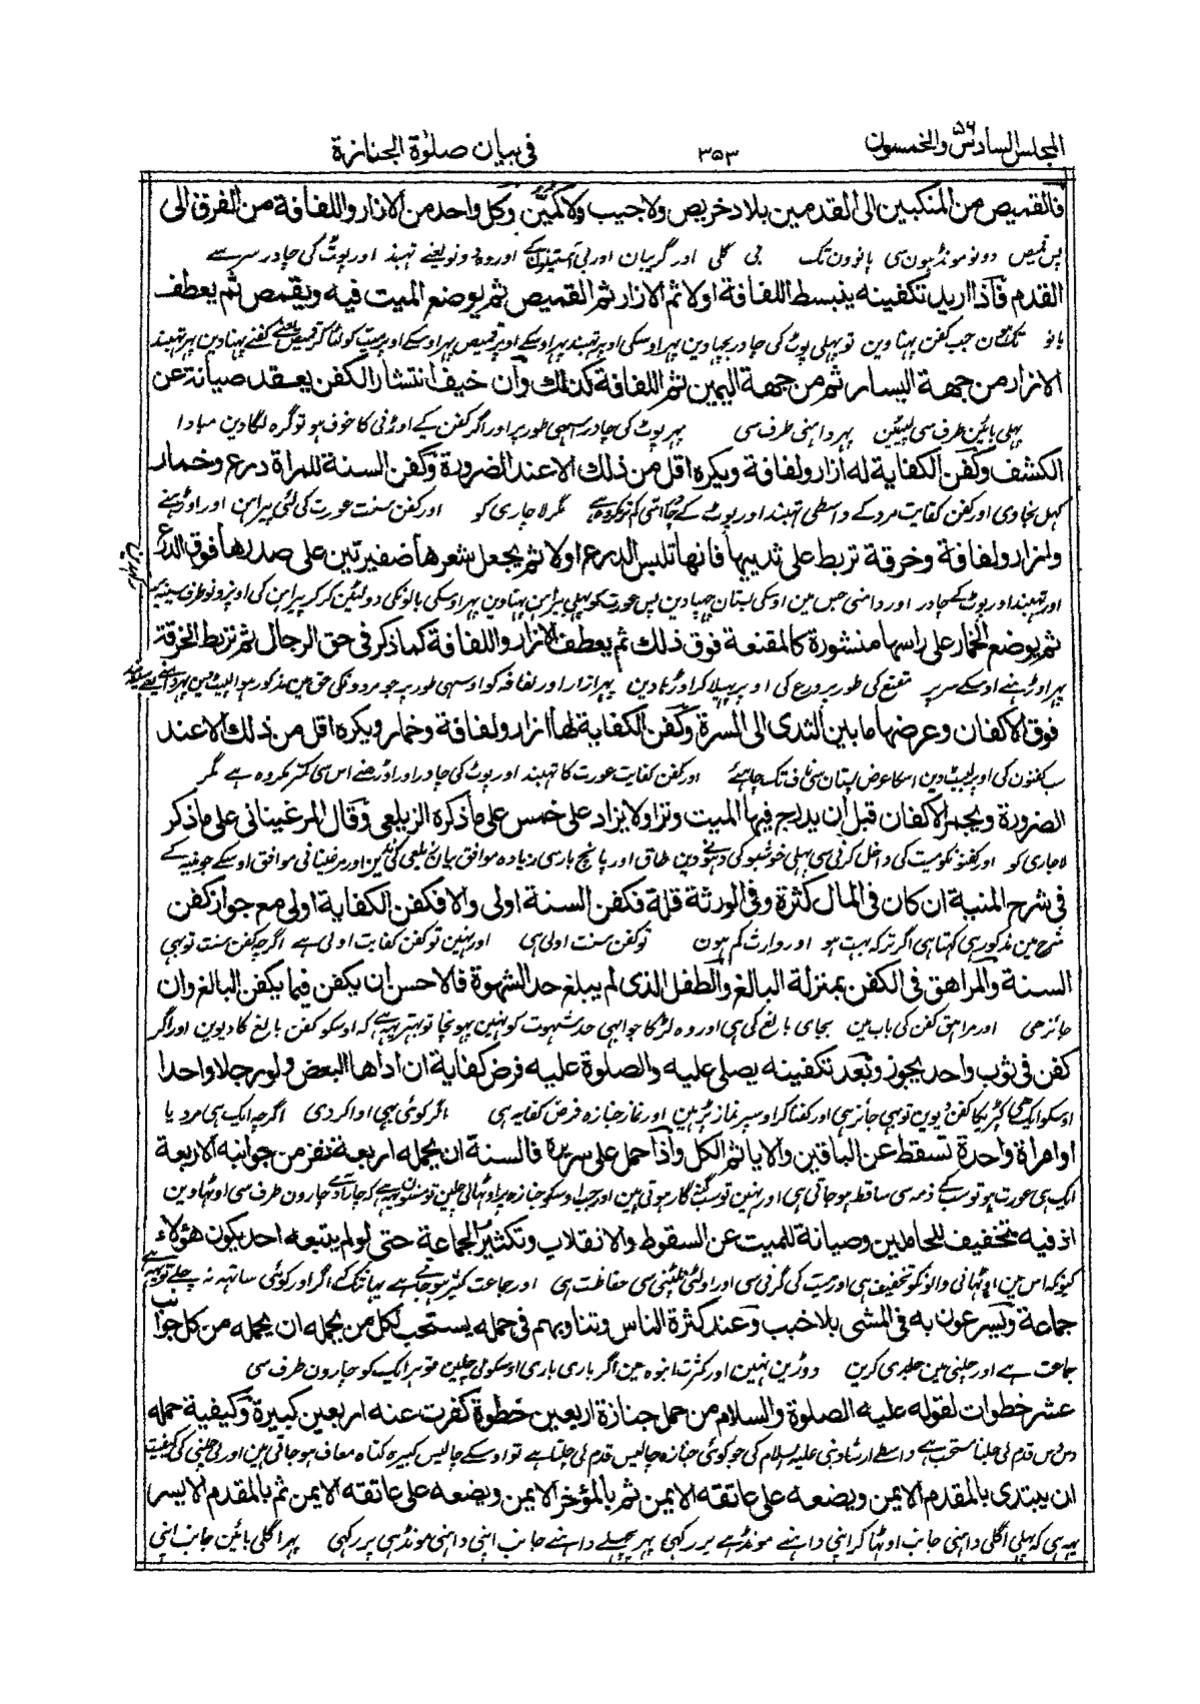 المجلس السادس والخمسون ۵۶
۳۵۳
فى بيان صلوٰة الجنازة
فالقميص من المنكبين الى القدمين بلا دخريص ولا جيب ولا كمين وكل واحد من الازار واللفافة من الفرق الى
پس قمیص دونو مونڈہون سی پانوون تک بی کلی اور گریبان اور بی آستینونکے اور وہ دونو یعنے تہبند اور پوٹ کی چادر سر سے
القدم فاذا اريد تكفينه ينبسط اللفافة اولا ثم الازار ثم القميص ثم يوضع الميت فيه ويقمص ثم يعطف
جب کفن پہناوین تو پہلی پوٹ کی چادر بچہاوین پہر اوسکی اوپر تہبند پہر اوسکے اوپر قمیص پہر اوسکے اوپر میت کو لٹا کر قمیص پہناوین پہر تہبند
الازار من جهة اليسار ثم من جهة اليمين ثم اللفافة كذلك وان خيف انتشار الكفن يعقد صيانة عن
پہلی بائین طرف سی لپیٹین پہر داہنی طرف سی پہر پوٹ کی چادر اسیہی طور پر اور اگر کفن کے اوڑنی کا خوف ہو تو گرہ لگادین مبادا
الكشف وكفن الكفاية له ازار ولفافة ويكره اقل من ذلك الا عند الضرورة وكفن السنة للمراة درع وخمار
کہل نجاوی اور کفن کفایت مرد کے واسطی تہبند اور پوٹ کے مگر لاچاری کو اور کفن سنت عورت کی لئی پیراہن اور اوڑہنے
وازار ولفافة وخرقة تربط على ثدييها فانها تلبس الدرع اولا ثم يجعل شعرها ضفيرتين على صدرها فوق الدرع
اور تہبند اور پوٹ کے چادر اور دامنی جس مین اوسکی پستان چہپادین پس عورت کو پہلی پیراہن پہناوین پہر اوسکی بالونکی دو لٹین کر کر پیراہن کی اوپر
ثم يوضع الخمار على راسها منشورة كالمقنعة فوق ذلك ثم يعطف الازار واللفافة كما ذكر فى حق الرجال ثم تربط الخرقة
پہر اوڑہنے اوسکے سر پر مقنع کی طور پر درع کی اوپر پہیلا کر اوڑہا دین پہر ازار اور لفافہ کو اوسیہی طور پر جو مردونکی حق مین مذکور ہوا
فوق الاكفان وعرضها ما بين الثدى الى السرة وكفن الكفاية لها ازار ولفافة وخمار ويكره اقل من ذلك الا عند
سب کفنون کی اوپر لپیٹ دین اسکا عرض پستان سی ناف تک چاہئے اور کفن کفایت عورت کا تہبند اور پوٹ کی چادر اور اوڑہنے اس سی کمتر مکروہ ہے مگر
الضرورة ويجمر الاكفان قبل ان يدرج فيها الميت وترا ولا يزاد على خمس على ما ذكره الزيلعى وقال المرغينانى على ما ذكر
لاچاری کو اور کفنونکو میت کی داخل کرنی سی پہلی خوشبو کی دہونی دین طاق اور پانچ بار سی زیادہ موافق بیان زیلعی کی نکرین اور مرغینانی موافق اوسکے جو منیہ کے
فى شرح المنية ان كان فى المال كثرة وفى الورثة قلة فكفن السنة اولى والا فكفن الكفاية اولى مع جواز كفن
شرح مین مذکور ہی کہتا ہی اگر ترکہ بہت ہو اور وارث کم ہون تو کفن سنت اولی ہی اور نہین تو کفن کفایت اولی ہے اگرچہ کفن سنت تو بہی
السنة والمراهق فى الكفن بمنزلة البالغ والطفل الذى لم يبلغ حد الشهوة فالاحسن ان يكفن فيما يكفن البالغ وان
جائز ہی اور مراہق کفن کی باب مین بجای بالغ کی ہی اور وہ لڑکا جو ابہی حد شہوت کو نہین پہونچا تو بہتر یہ ہے کہ اوسکو کفن بالغ کا دیوین اور اگر
كفن فى ثوب واحد يجوز وبعد تكفينه يصلى عليه والصلوة عليه فرض كفاية ان اداها البعض ولو رجلا واحدا
اوسکو ایک ہی کپڑیکا کفن دیوین تو بہی جائز ہی اور کفنا کر اوسپر نماز پڑہین اور نماز جنازہ فرض کفایہ ہی اگر کوئی بہی ادا کردی اگرچہ ایک ہی مرد یا
او امراة واحدة تسقط عن الباقين والا ياثم الكل واذا حمل على سريره فالسنة ان يحمله اربعة نفر من جوانبه الاربعة
ایک ہی عورت ہو تو سب کے ذمہ سی ساقط ہو جاتی ہی اور نہین تو سب گنہگار ہوتی ہین اور جب اوسکو جنازہ پر اوٹہا لی چلین تو سنت یہ ہے کہ چار آدمی چارون طرف سی اوٹہاوین
اذ فيه تخفيف للحاملين وصيانة للميت عن السقوط والانقلاب وتكثير الجماعة حتى لو لم يتبعه احد يكون هؤلاء
کیونکہ اس مین اوٹہانی والونکو تخفیف ہی اور میت کی گرنی سی اور اولٹی پلٹنی سی حفاظت ہی اور جماعت کثیر ہو جاتے ہے یہانتک کے اگر اور کوئی ساتہہ نہ چلے تو یہہ
جماعة ويسرعون به فى المشى بلا خبب وعند كثرة الناس وتناوبهم فى حمله يستحب لكل من يحمله ان يحمله من كل جوانب
جماعت ہے اور چلنی مین جلدی کرین دوڑین نہین اور کثرت انبوہ مین اگر باری باری اوسکو لی چلین تو ہر ایک کو چارون طرف سی
عشر خطوات لقوله عليه الصلوة والسلام من حمل جنازة اربعين خطوة كفرت عنه اربعين كبيرة وكيفية حمله
دس دس قدم لی چلنا مستحب ہے واسطے ارشاد نبی علیہ السلام کی جو کوئی جنازہ چالیس قدم لی چلتا ہے تو اوسکے چالیس کبیرہ گناہ معاف ہو جاتی ہین اور لی چلنی کی کیفیت
ان يبتدى بالمقدم الايمن ويضعه على عاتقه الايمن ثم بالمؤخر الايمن ويضعه على عاتقه الايمن ثم بالمقدم الايسر
یہہ ہی کہ پہلی اگلی داہنی جانب اوٹہا کر اپنی داہنے مونڈہے پر رکہی پہر پچہلے داہنے جانب اپنی داہنی مونڈہی پر رکہی پہر اگلی بائین جانب اپنی